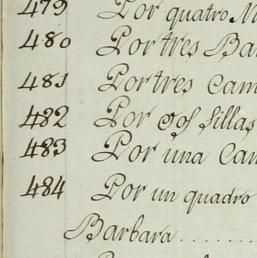 479 Por quatro
480 Por tres Ba
481 Por tres Cam
482 Por dos sillas
483 Por una Cam
484 Por un quadro
Barbara......